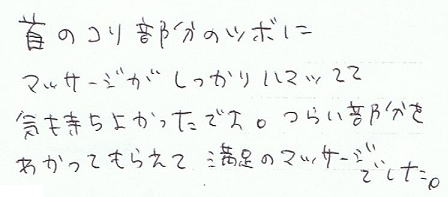 首のコリ部分のツボに
マッサージがしっかりハマッてて
気持ちよかったです。つらい部分を
わかってもらえて満足のマッサージでした。